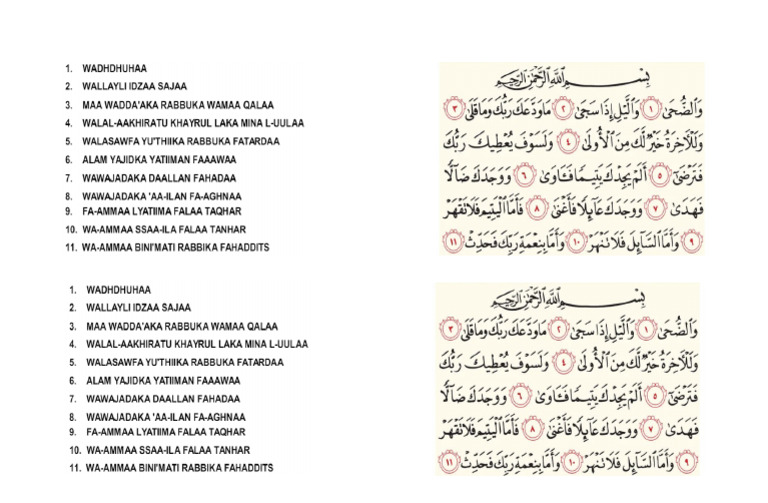 1. WADHDHUHAA
2. WALLAYLI IDZAA SAJAA
3. MAA WADDA'AKA RABBUKA WAMAA QALAA
4. WALAL-AAKHIRATU KHAYRUL LAKA MINA L-UULAA
5. WALASAWFA YU'THIIKA RABBUKA FATARDAA
6. ALAM YAJIDKA YATIIMAN FAAAWAA
7. WAWAJADAKA DAALLAN FAHADAA
8. WAWAJADAKA 'AA-ILAN FA-AGHNAA
9. FA-AMMAA LYATIIMA FALAA TAQHAR
10. WA-AMMAA SSAA-ILA FALAA TANHAR
11. WA-AMMAA BINI'MATI RABBIKA FAHADDITS
بِسْمِ اللَّهِ الرَّحْمَٰنِ الرَّحِيمِ
وَالضُّحَىٰ ١ وَاللَّيْلِ إِذَا سَجَىٰ ٢ مَا وَدَّعَكَ رَبُّكَ وَمَا قَلَىٰ ٣
وَلَلْآخِرَةُ خَيْرٌ لَّكَ مِنَ الْأُولَىٰ ٤ وَلَسَوْفَ يُعْطِيكَ رَبُّكَ
فَتَرْضَىٰ ٥ أَلَمْ يَجِدْكَ يَتِيمًا فَآوَىٰ ٦ وَوَجَدَكَ ضَالًّا
فَهَدَىٰ ٧ وَوَجَدَكَ عَائِلًا فَأَغْنَىٰ ٨ فَأَمَّا الْيَتِيمَ فَلَا تَقْهَرْ
٩ وَأَمَّا السَّائِلَ فَلَا تَنْهَرْ ١٠ وَأَمَّا بِنِعْمَةِ رَبِّكَ فَحَدِّثْ ١١
1. WADHDHUHAA
2. WALLAYLI IDZAA SAJAA
3. MAA WADDA'AKA RABBUKA WAMAA QALAA
4. WALAL-AAKHIRATU KHAYRUL LAKA MINA L-UULAA
5. WALASAWFA YU'THIIKA RABBUKA FATARDAA
6. ALAM YAJIDKA YATIIMAN FAAAWAA
7. WAWAJADAKA DAALLAN FAHADAA
8. WAWAJADAKA 'AA-ILAN FA-AGHNAA
9. FA-AMMAA LYATIIMA FALAA TAQHAR
10. WA-AMMAA SSAA-ILA FALAA TANHAR
11. WA-AMMAA BINI'MATI RABBIKA FAHADDITS
بِسْمِ اللَّهِ الرَّحْمَٰنِ الرَّحِيمِ
وَالضُّحَىٰ ١ وَاللَّيْلِ إِذَا سَجَىٰ ٢ مَا وَدَّعَكَ رَبُّكَ وَمَا قَلَىٰ ٣
وَلَلْآخِرَةُ خَيْرٌ لَّكَ مِنَ الْأُولَىٰ ٤ وَلَسَوْفَ يُعْطِيكَ رَبُّكَ
فَتَرْضَىٰ ٥ أَلَمْ يَجِدْكَ يَتِيمًا فَآوَىٰ ٦ وَوَجَدَكَ ضَالًّا
فَهَدَىٰ ٧ وَوَجَدَكَ عَائِلًا فَأَغْنَىٰ ٨ فَأَمَّا الْيَتِيمَ فَلَا تَقْهَرْ
٩ وَأَمَّا السَّائِلَ فَلَا تَنْهَرْ ١٠ وَأَمَّا بِنِعْمَةِ رَبِّكَ فَحَدِّثْ ١١